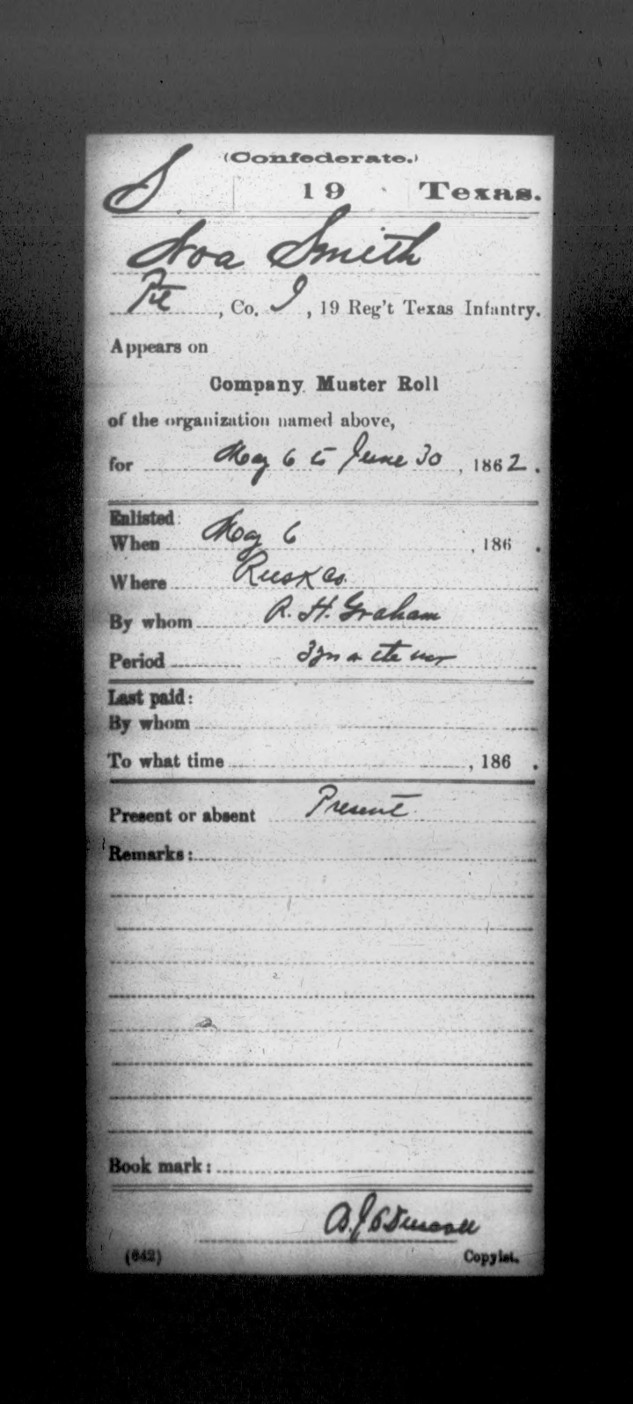 (Confederate.)
S 19 Texas.
Noa Smith
Pvt, Co. I, 19 Reg't Texas Infantry.
Appears on
Company Muster Roll
of the organization named above,
for May 6 to June 30, 1862.
Enlisted:
When May 6, 186 .
Where Rusk Co.
By whom R. H. Graham
Period 3 yrs or the war
Last paid:
By whom
To what time , 186 .
Present or absent Present
Remarks:
Book mark:
(642) Copyist.